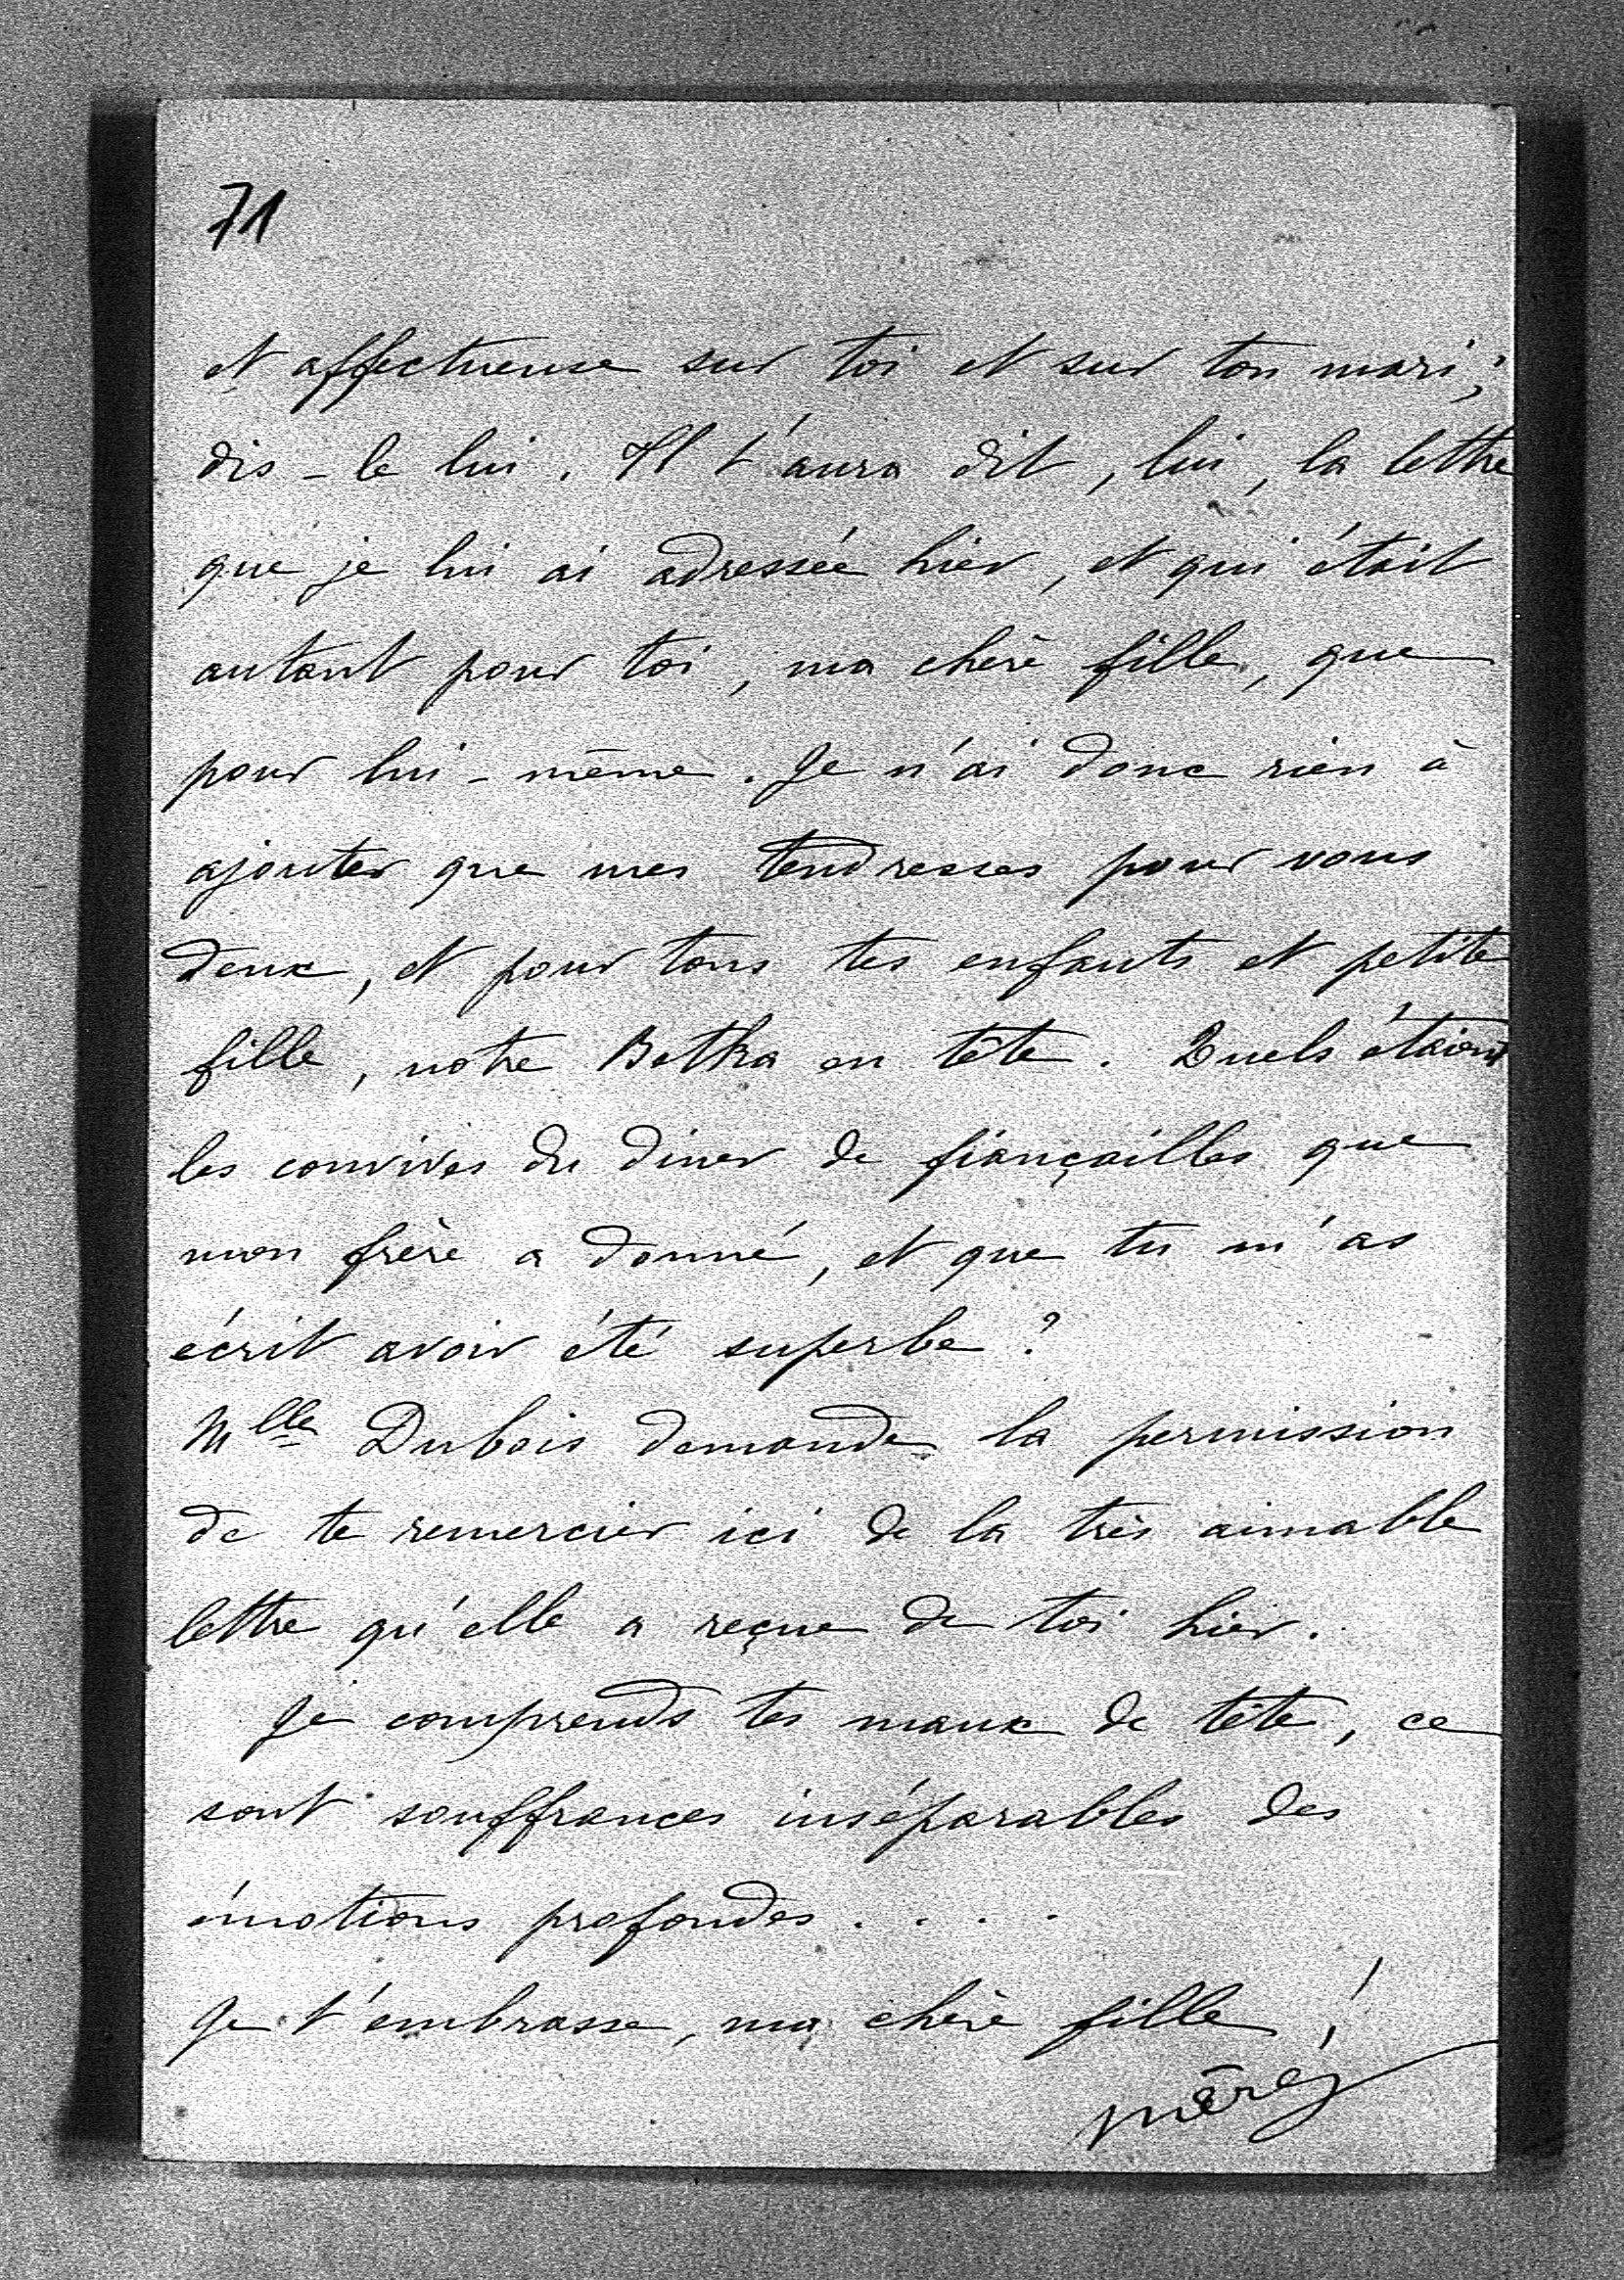 71
et affectueuse sur toi et sur ton mari;
dis-le lui. Il t'aura dit, lui, la lettre
que je lui ai adressée hier, et qui était
autant pour toi, ma chère fille, que
pour lui-même. Je n'ai donc rien à
ajouter que mes tendresses pour vous
deux, et pour tous tes enfants et petite
fille, notre Betka en tête. Quels étaient
les convives du diner de fiançailles que
mon frère a donné, et que tu m'as
écrit avoir été superbe?
Mlle Dubois demande la permission
de te remercier ici de la très aimable
lettre qu'elle a reçue de toi hier.
Je comprends tes maux de tête, ce
sont souffrances inséparables des
émotions profondes....
Je t'embrasse, ma chère fille!
mère